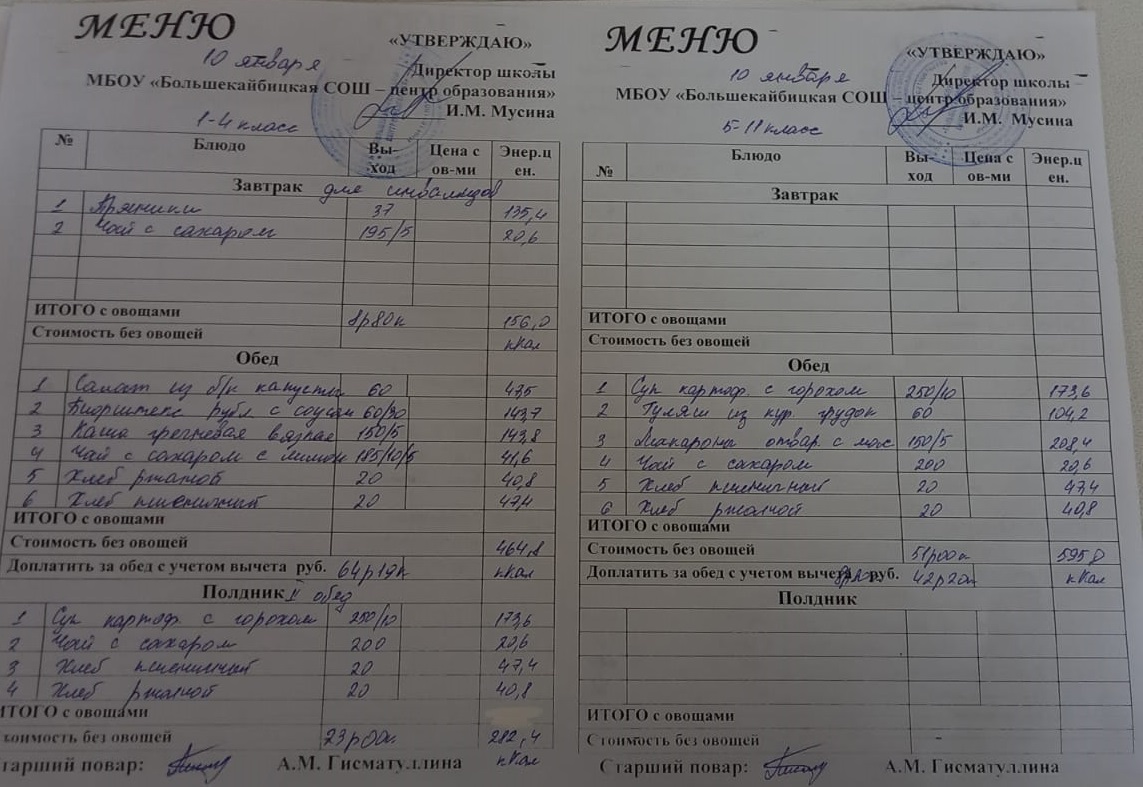 МЕНЮ
10 января
«УТВЕРЖДАЮ»
Директор школы
МБОУ «Большекайбицкая СОШ – центр образования»
И.М. Мусина
1-4 класс
№ Блюдо Вы-ход Цена с ов-ми Энер.ц ен.
Завтрак для инвалидов
1 Пряники 37 135,4
2 Чай с сахаром 195/5 20,6
ИТОГО с овощами 8р80к 156,0
Стоимость без овощей кКал
Обед
1 Салат из б/к капусты 60 47,5
2 Бифштекс рубл. с соусом 60/30 143,7
3 Каша гречневая вязкая 150/5 143,8
4 Чай с сахаром с лимон 185/10/5 41,6
5 Хлеб ржаной 20 40,8
6 Хлеб пшеничный 20 47,4
ИТОГО с овощами
Стоимость без овощей 464,8
Доплатить за обед с учетом вычета руб. 64р19к кКал
Полдник II обед
1 Суп картоф. с горохом 250/10 173,6
2 Чай с сахаром 200 20,6
3 Хлеб пшеничный 20 47,4
4 Хлеб ржаной 20 40,8
ИТОГО с овощами
тоимость без овощей 23р00к 282,4
тарший повар: А.М. Гисматуллина кКал
МЕНЮ
10 января
«УТВЕРЖДАЮ»
Директор школы
МБОУ «Большекайбицкая СОШ – центр образования»
И.М. Мусина
5-11 класс
№ Блюдо Вы-ход Цена с ов-ми Энер.ц ен.
Завтрак
ИТОГО с овощами
Стоимость без овощей
Обед
1 Суп картоф. с горохом 250/10 173,6
2 Гуляш из кур. грудок 60 104,2
3 Макароны отвар. с мас 150/5 208,4
4 Чай с сахаром 200 20,6
5 Хлеб пшеничный 20 47,4
6 Хлеб ржаной 20 40,8
ИТОГО с овощами
Стоимость без овощей 51р00к 595,0
Доплатить за обед с учетом вычета руб. 42р20к кКал
Полдник
ИТОГО с овощами
Стоимость без овощей
Старший повар: А.М. Гисматуллина